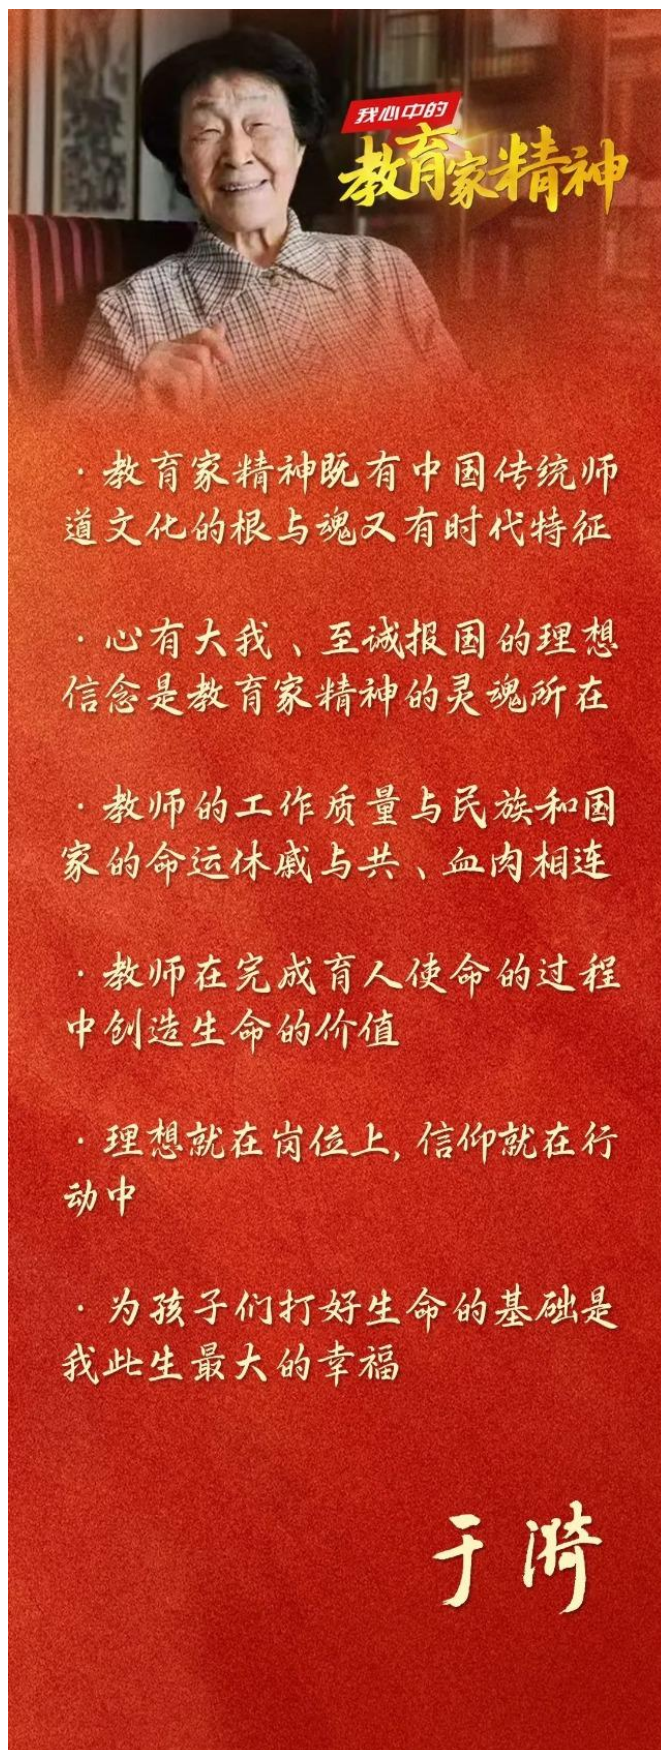 我心中的
教育家精神
·教育家精神既有中国传统师
道文化的根与魂又有时代特征
·心有大我、至诚报国的理想
信念是教育家精神的灵魂所在
·教师的工作质量与民族和国
家的命运休戚与共、血肉相连
·教师在完成育人使命的过程
中创造生命的价值
·理想就在岗位上,信仰就在行
动中
·为孩子们打好生命的基础是
我此生最大的幸福
于漪